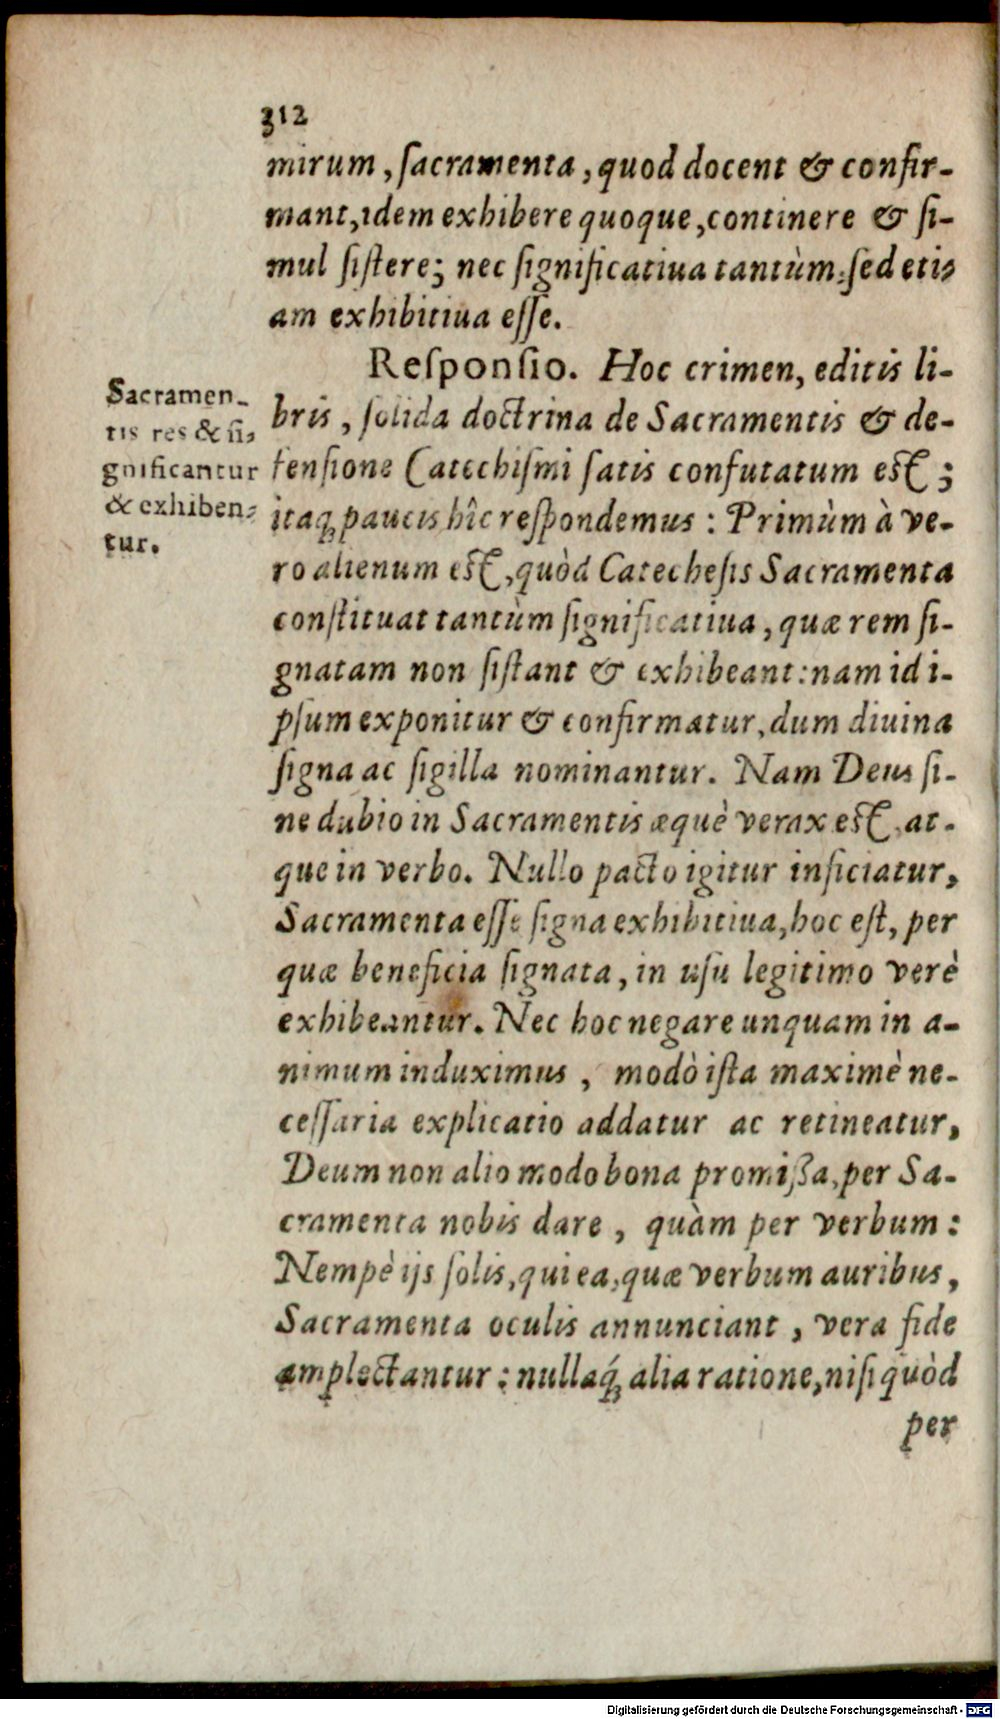 312
mirum, ſacramenta, quod docent & confir-
mant, idem exhibere quoque, continere & ſi-
mul ſiſtere; nec ſignificatiua tantùm: ſed eti-
am exhibitiua eſſe.
Reſponſio. Hoc crimen, editis li-
bris, ſolida doctrina de Sacramentis & de-
fenſione Catechiſmi ſatis confutatum eſt;
itaq; paucis hîc reſpondemus: Primùm à ve-
ro alienum eſt, quòd Catecheſis Sacramenta
conſtituat tantùm ſignificatiua, quæ rem ſi-
gnatam non ſiſtant & exhibeant: nam id i-
pſum exponitur & confirmatur, dum diuina
ſigna ac ſigilla nominantur. Nam Deus ſi-
ne dubio in Sacramentis æquè verax eſt, at-
que in verbo. Nullo pacto igitur inficiatur,
Sacramenta eſſe ſigna exhibitiua, hoc eſt, per
quæ beneficia ſignata, in uſu legitimo verè
exhibeantur. Nec hoc negare unquam in a-
nimum induximus, modò iſta maximè ne-
ceſſaria explicatio addatur ac retineatur,
Deum non alio modo bona promiſſa, per Sa-
cramenta nobis dare, quàm per verbum:
Nempè ijs ſolis, qui ea, quæ verbum auribus,
Sacramenta oculis annunciant, vera fide
amplectantur: nullaq́; alia ratione, niſi quòd
per
Sacramen-
tis res & ſi-
gnificantur
& exhiben-
tur.
Digitalisierung gefördert durch die Deutsche Forschungsgemeinschaft - DFG